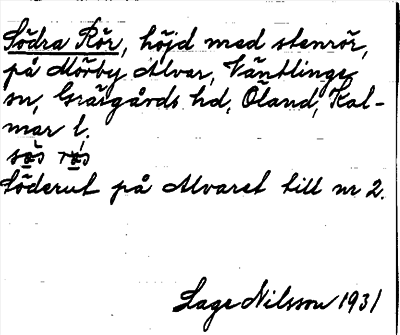 Södra Rör, höjd med stenrör,
på Mörby Alvar, Ventlinge
sn, Gräsgårds hd, Öland, Kal-
mar l.
Söderut på Alvaret till nr 2.
Lage Nilsson 1931